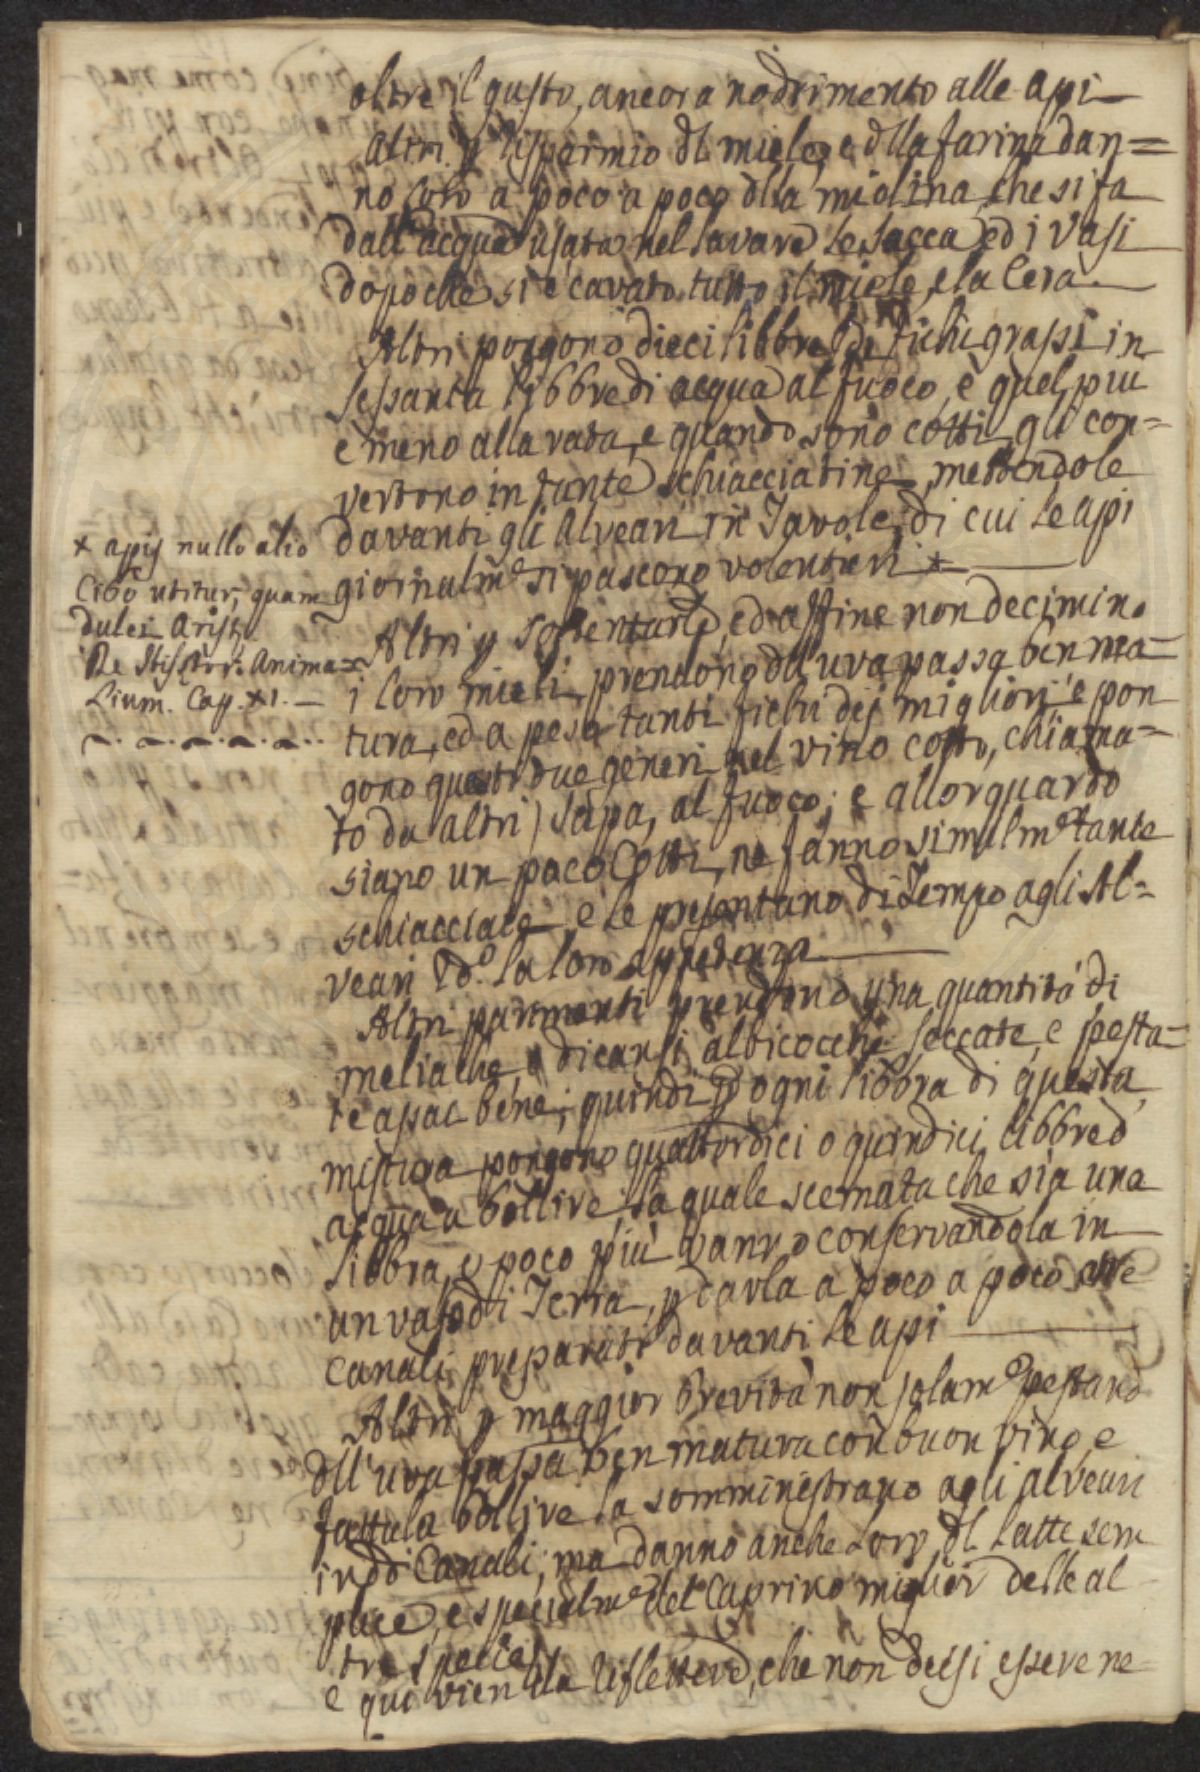 oltre il gusto, ancora nodrimento alle api
Altri p risparmio dl miele, e dlla farina dan=
no loro a poco a poco dlla miolina, che si fa
dall'acqua usata nel lavare le sacca, ed i vasi
dopoche si è cavato tutto il miele, e la Cera
Altri pongono dieci libbre di fichi grassi in
sessanta libbre di acqua al fuoco, e quel più
e meno alla rata, e quando sono cotti, gli con=
vertono in tante schiacciatine, mettendole
davanti gli Alveari in Tavole, di cui le api
giornalm.e si pascono volentieri x
x apis nullo alio
Cibo utitur, quam
dulci Arist.
De Histor: Anima=
lium. Cap. XI.
Altri p sostentarle, ed affine non decimino
i loro mieli, prendono dll'uva passa ben ma=
tura, ed a peso tanti fichi dei migliori e pon
gono questi due generi nel vino cotto, chiama=
to da altri) sapa, al fuoco; e allorquando
siano un poco Cotti, ne fanno similm.e tante
schiacciate, e le presentano di Tempo agli Al=
veari 2do. la loro appetenza
Altri parimenti prendono una quantità di
meliache, o dicansi albicocche seccate, e pesta=
te assai bene; quindi p ogni libbra di questa
mistura pongono quattordici o quindici libbre d
acqua a bollire, la quale scemata che sia una
libbra, o poco più vanno conservandola in
un vaso di Terra, p darla a poco a poco ne
Canali preparati davanti le api
Altri p maggior brevità non solam.e pestano
dll'uva passa ben matura con buon vino, e
fattala bollire la somministrano agli alveari
in dti Canali; ma danno anche loro dl latte sem
plice, e specialm.e del Caprino miglior delle al=
tre specie
e qui vien da riflettere, che non deesi essere ne=